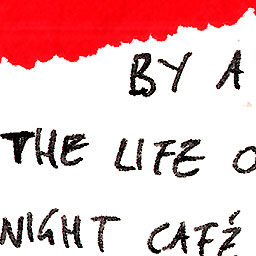 BY A
THE LIFE O
NIGHT CAFÉ